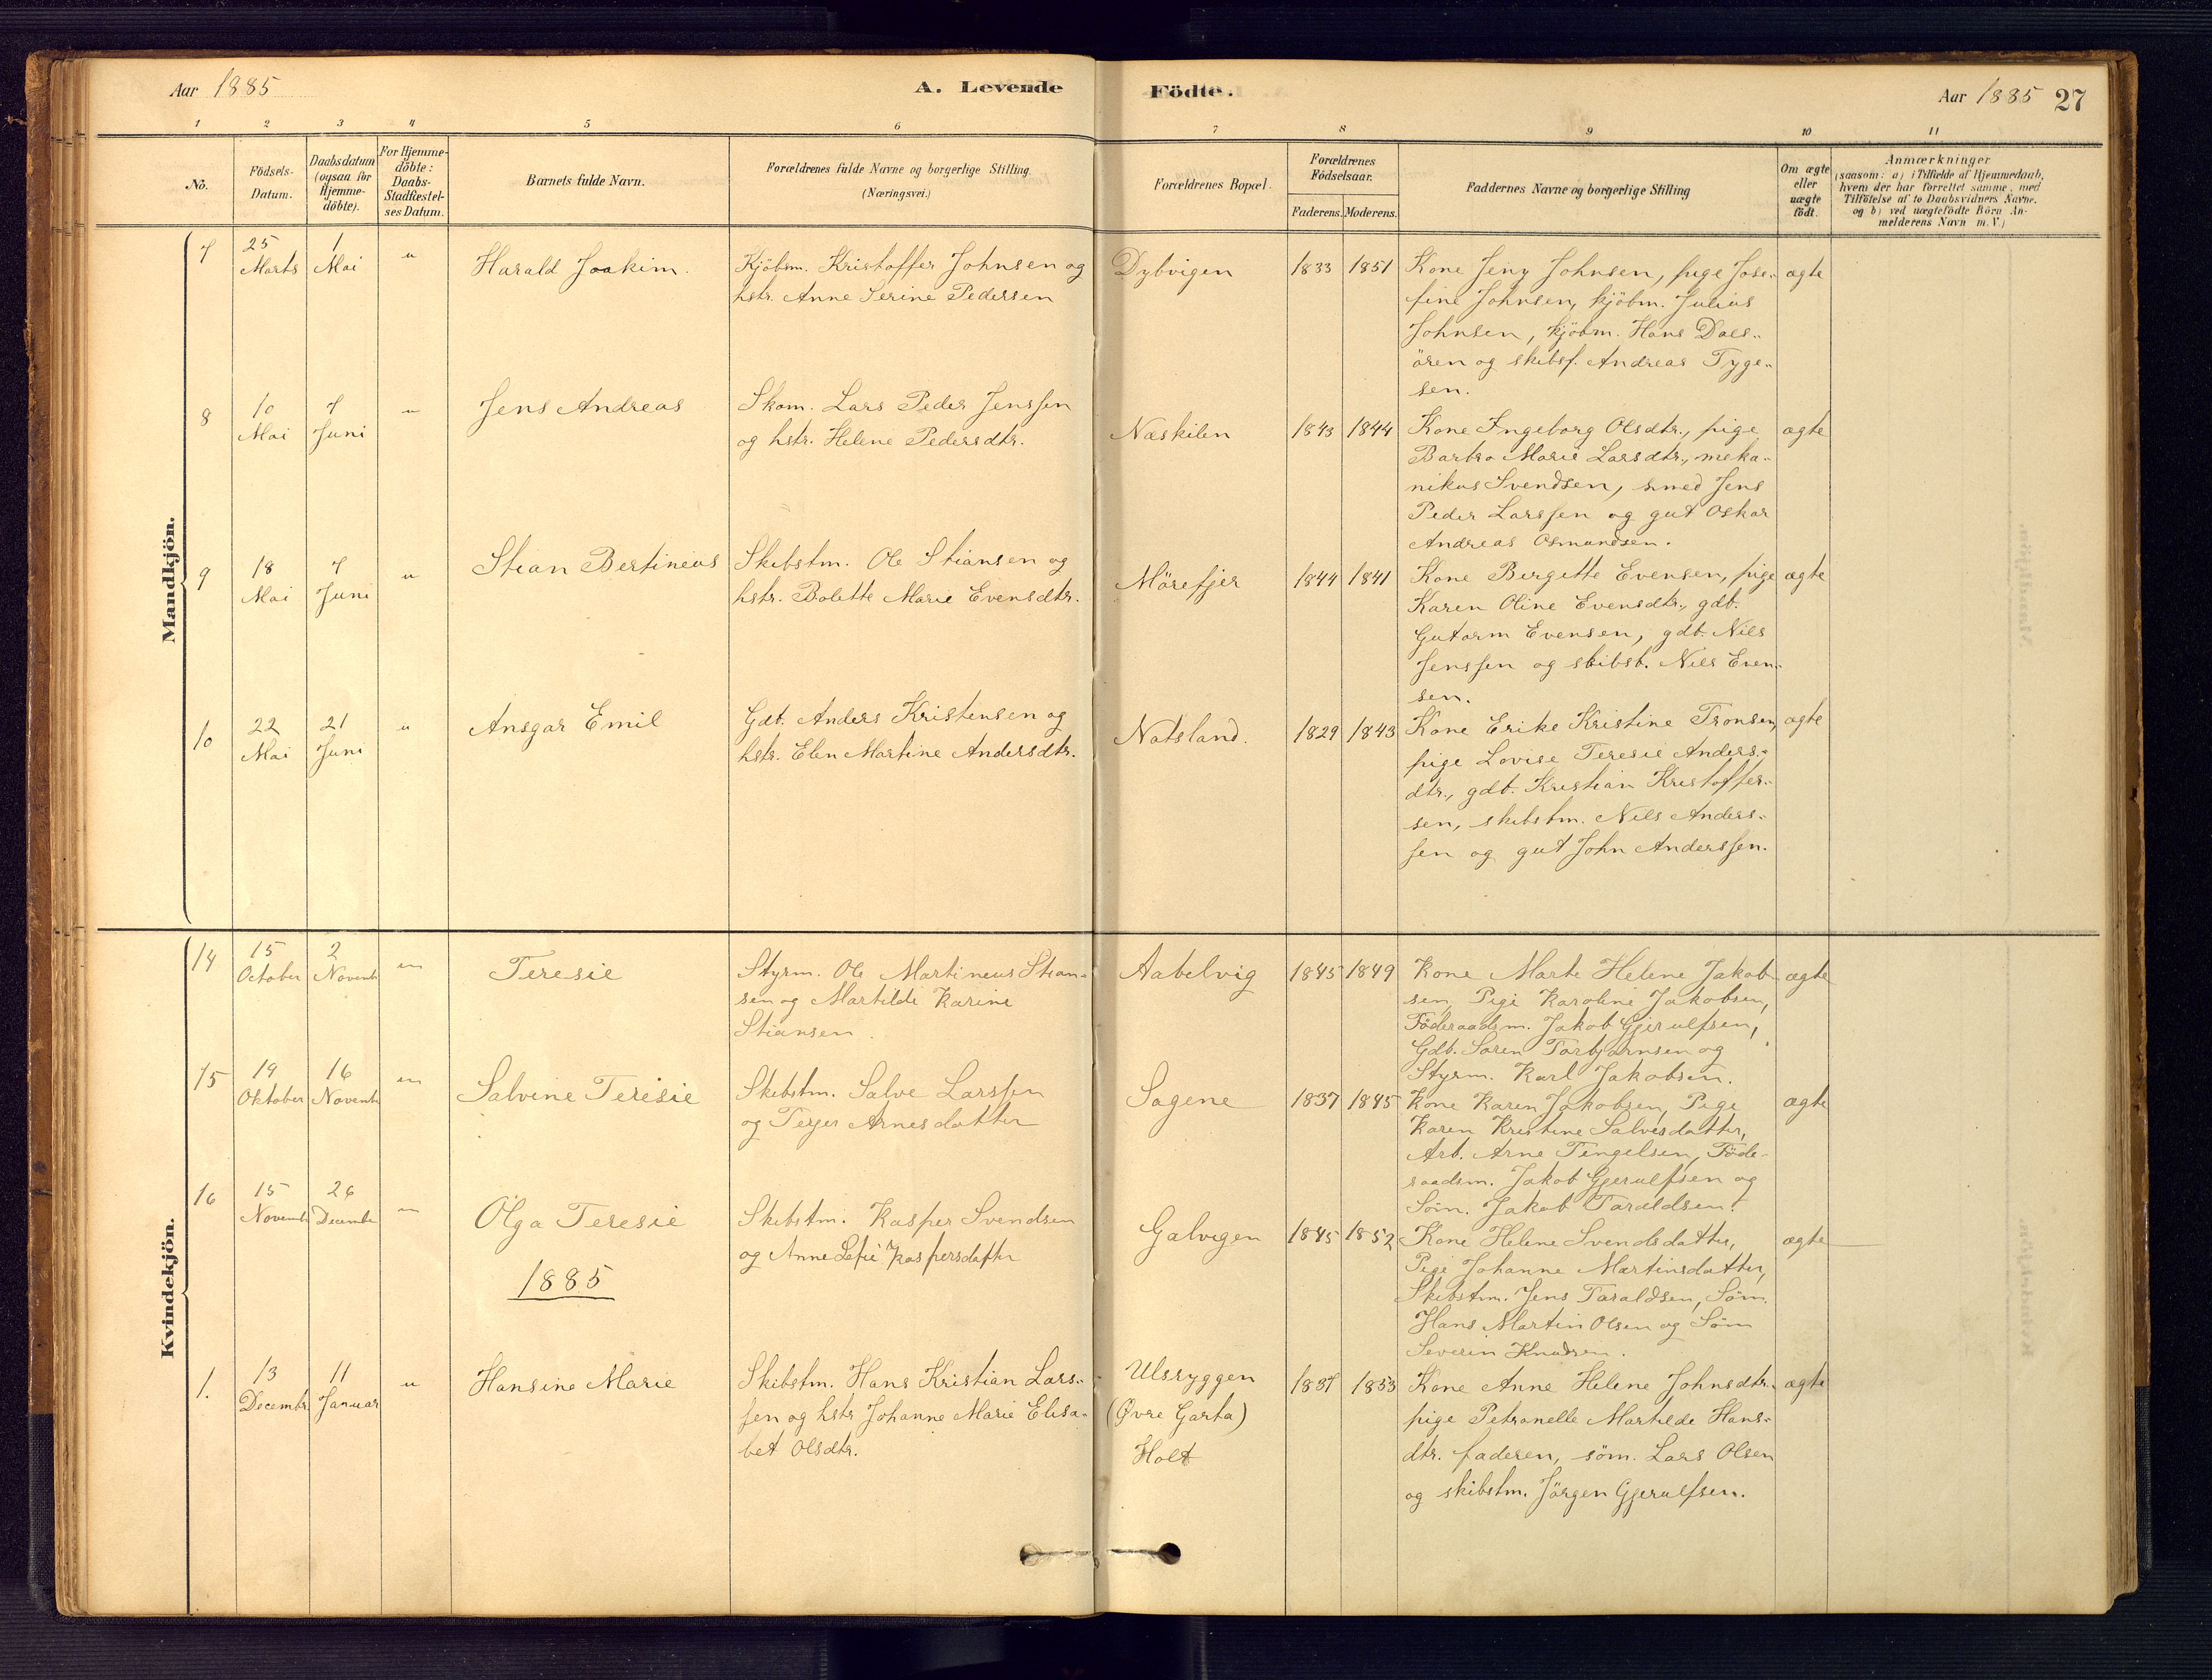 Aar 1885
A. Levende Födte.
Aar 1885 27
1 2 3 4 5 6 7 8 9 10 11
No.
Födsels-Datum.
Daabsdatum (ogsaa for Hjemme-döbte).
For Hjemme-döbte: Daabs-Stadfæstel-ses Datum.
Barnets fulde Navn.
Forældrenes fulde Navne og borgerlige Stilling. (Næringsvei.)
Forældrenes Bopæl.
Forældrenes Födselsaar.
Faderens. Moderens.
Faddernes Navne og borgerlige Stilling
Om ægte eller uægte födt.
Anmærkninger
(saasom: a) i Tilfælde af Hjemmedaab,
hvem der har forrettet samme, med
Tilföielse af to Daabsvidners Navne.
og b) ved uægtefödte Börn An-
melderens Navn m.V.)
Mandkjön.
7
25 Marts
1 Mai
"
Harald Joakim.
Kjöbm. Kristoffer Johnsen og
hstr. Anne Serine Pedersen
Dybvigen
1833 1851
Kone Jeny Johnsen, pige Jose-
fine Johnsen, kjöbm. Julius
Johnsen, kjöbm. Hans Dals-
ören og skibsf. Andreas Tyge-
sen.
ægte
8
10 Mai
7 Juni
"
Jens Andreas
Skom. Lars Peder Jenssen
og hstr. Helene Pedersdtr.
Næskilen
1843 1844
Kone Ingeborg Olsdtr., pige
Barbro Marie Larsdtr., meka-
nikus Svendsen, smed Jens
Peder Larssen og gut Oskar
Andreas Osmundsen.
ægte
9
18 Mai
7 Juni
"
Stian Bertineus
Skibstm. Ole Stiansen og
hstr. Bolette Marie Evensdtr.
Mörefjer
1844 1841
Kone Birgitte Evensen, pige
Karen Oline Evensdtr., gdb.
Gutorm Evensen, gdb. Nils
Jenssen og skibst. Nils Even-
sen.
ægte
10
22 Mai
21 Juni
"
Ansgar Emil
Gdb. Anders Kristensen og
hstr. Elen Martine Andersdtr.
Natsland.
1829 1843
Kone Erike Kristine Tronsen,
pige Lovise Teresie Anders-
dtr., gdb. Kristian Kristoffer-
sen, skibstm. Nils Anders-
sen og gut John Anderssen.
ægte
Kvindekjön.
14
15 October
2 Novemb
"
Teresie
Styrm. Ole Martineus Stian-
sen og Martilde Karine
Stiansen.
Aabelvig
1845 1849
Kone Marte Helene Jakob-
sen, Pige Karoline Jakobsen,
Föderaadsm. Jakob Gjerulfsen,
Gdb. Sören Torbjörnsen og
Styrm. Karl Jakobsen.
ægte
15
19 Oktober
16 Novemb
"
Salvine Teresie
Skibstm. Salve Larssen
og Terjer Arnesdatter
Sagene
1837 1845
Kone Karen Jakobsen, Pige
Karen Kristine Salvesdatter,
Arb. Arne Tengelsen, Föde-
raadsm. Jakob Gjerulfsen og
Söm. Jakob Taraldsen.
ægte
16
15 Novemb
26 Decembe
"
Olga Teresie
Skibstm. Kasper Svendsen
og Anne Lefie Kaspersdatter
Galvigen
1845 1852
Kone Helene Svendsdatter,
Pige Johanne Martinsdatter,
Skibstm. Jens Taraldsen, Söm.
Hans Martin Olsen og Söm
Severin Knudsen.
ægte
1885
1.
13 Decembr.
11 Januar
"
Hansine Marie
Skibstm. Hans Kristian Lars-
sen og hstr Johanne Marie Elisa-
bet Olsdtr.
Ulsryggen
(Øvre Garta)
Holt
1837 1853
Kone Anne Helene Johnsdtr.
pige Petronelle Martilde Hans-
dtr. faderen, söm. Lars Olsen
og skibstm. Jörgen Gjerulfsen.
ægte